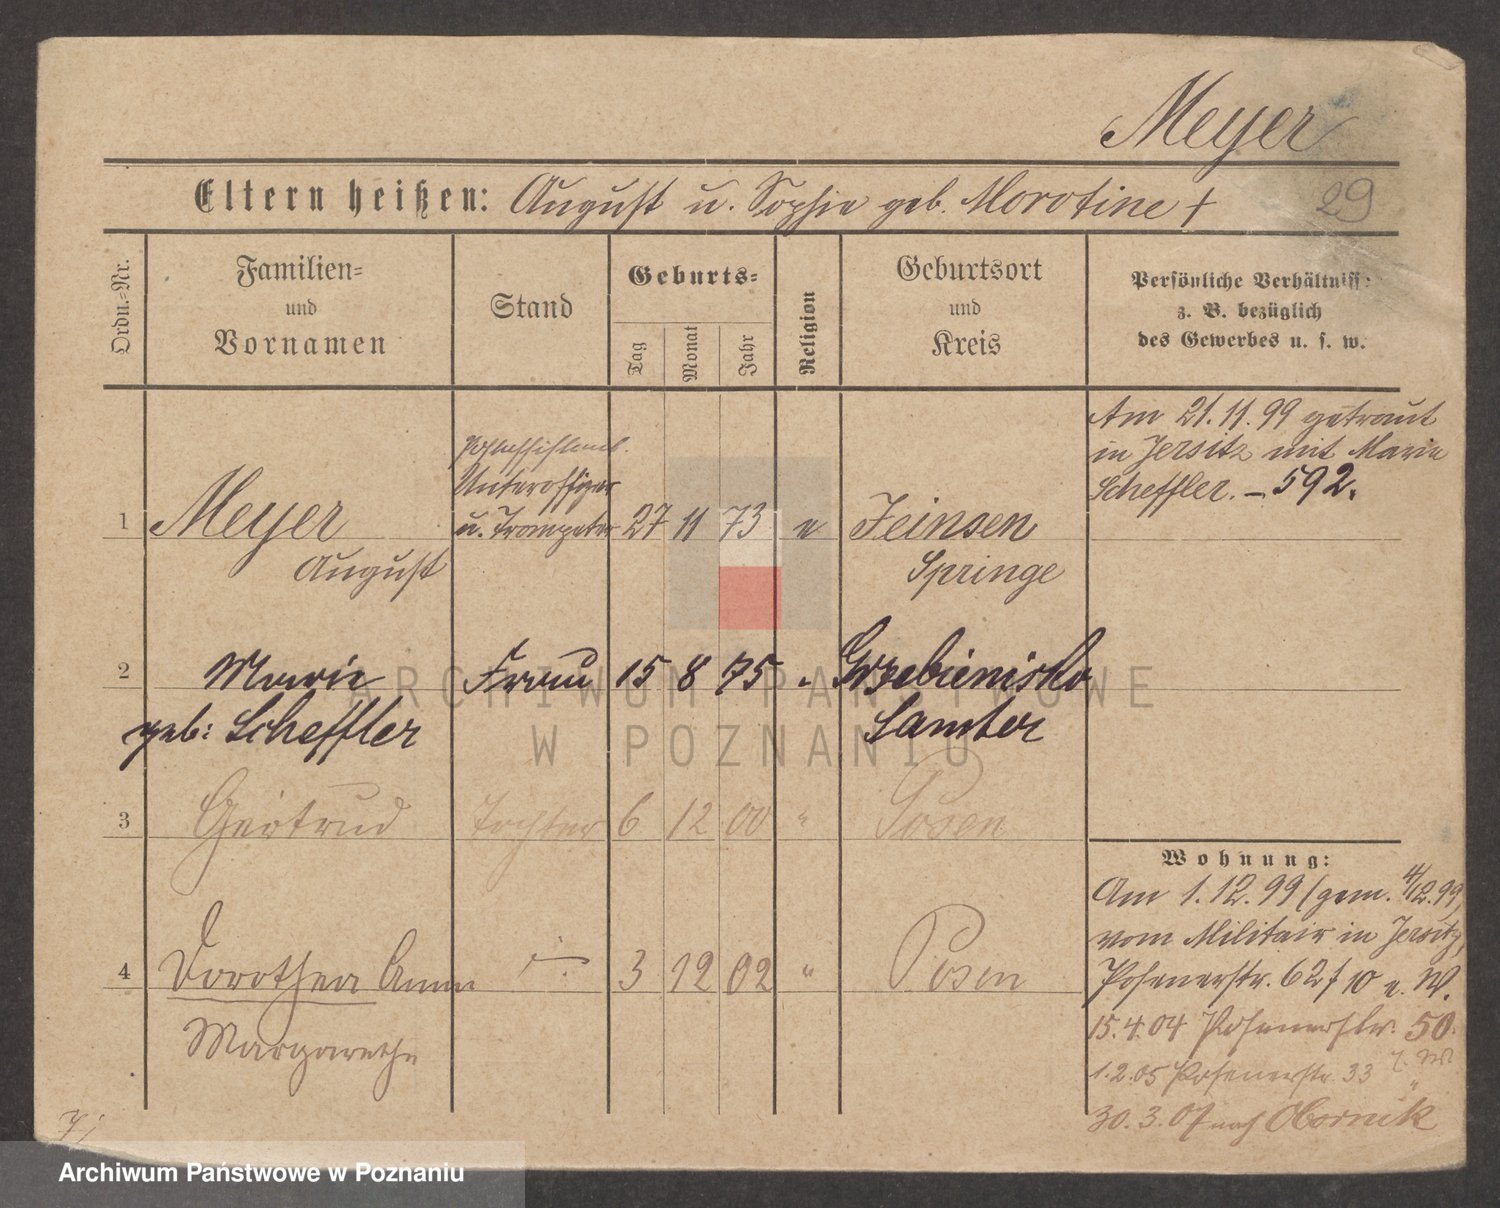 Meyer
Eltern heißen: August u. Sophie geb. Morotine +
29
Ordn.-Nr.
Familien-
und
Vornamen
Stand
Geburts-
Tag
Monat
Jahr
Religion
Geburtsort
und
Kreis
Persönliche Verhältnisse
z. B. bezüglich
des Gewerbes u. s. w.
Am 21.11.99 getraut
in Jersitz mit Marie
Scheffler. – 592.
Unteroffizier
1 Meyer u. Trompeter 27 11 73 e Jeinsen
August Springe
2 Marie Frau 15 8 75 " Grzebienisko
geb: Scheffler Samter
3 Gertrud Tochter 6 12 00 " Posen
4 Dorothea Anna 3 12 02 " Posen
Margarethe
Wohnung:
Am 1.12.99 (gem. 4/12.99)
vom Militair in Jersitz,
Posenerstr. 62 f 10 e. W.
15.4.04 Posenerstr. 50.
1.2.05 Posenerstr. 33 "
30.3.07 nach Obornik
ARCHIWUM PAŃSTWOWE
W POZNANIU
Archiwum Państwowe w Poznaniu